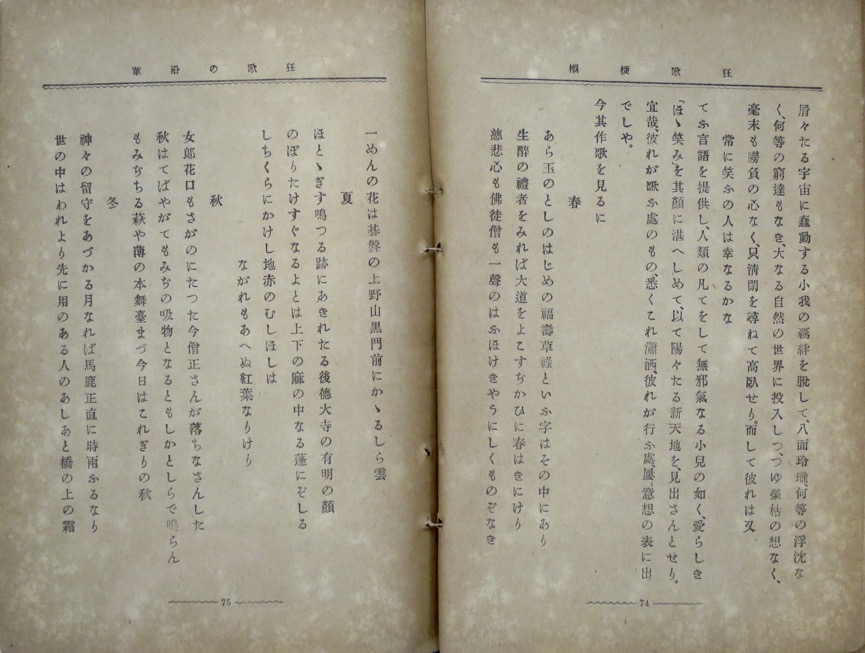 狂歌梗概
屑々たる宇宙に蠢動する小我の羈絆を脫して、八面玲瓏、何等の浮沈な
く、何等の窮達もなき、大なる自然の世界に投入しつゝ、つゆ榮枯の想なく、
毫末も勝負の心なく、只淸閒を尋ねて高臥せり。而して彼れは又
常に笑ふの人は幸なるかな
てふ言語を提供し、人類の凡てをして無邪氣なる小兒の如く、愛らしき
「ほゝ笑み」を其顏に湛へしめて、以て陽々たる新天地を、見出さんとせり。
宜哉、彼れが歌ふ處のもの、悉くこれ瀟洒、彼れが行ふ處、屢〻意想の表に出
でしや。
今其作歌を見るに
春
あら玉のとしのはじめの福壽草祿といふ字はその中にあり
生醉の禮者をみれば大道をよこすぢかひに春はきにけり
慈悲心も佛徒僧も一聲のはふほけきやうにしくものぞなき
74
狂歌の沿革
一めんの花は碁盤の上野山黑門前にかゝるしら雲
夏
ほとゝぎす鳴つる跡にあきれたる後德大寺の有明の顏
のぼりたけすぐなるよとは上下の麻の中なる蓬にぞしる
しちくらにかけし地赤のむしほしは
ながれもあへぬ紅葉なりけり
秋
女郎花口もさがのにたつた今僧正さんが落ちなさんした
秋はてばやがてもみぢの吸物となるともしかとしらで鳴らん
もみぢちる萩や薄の本舞臺まづ今日はこれぎりの秋
冬
神々の留守をあづかる月なれば馬鹿正直に時雨ふるなり
世の中はわれより先に用のある人のあしあと橋の上の霜
75